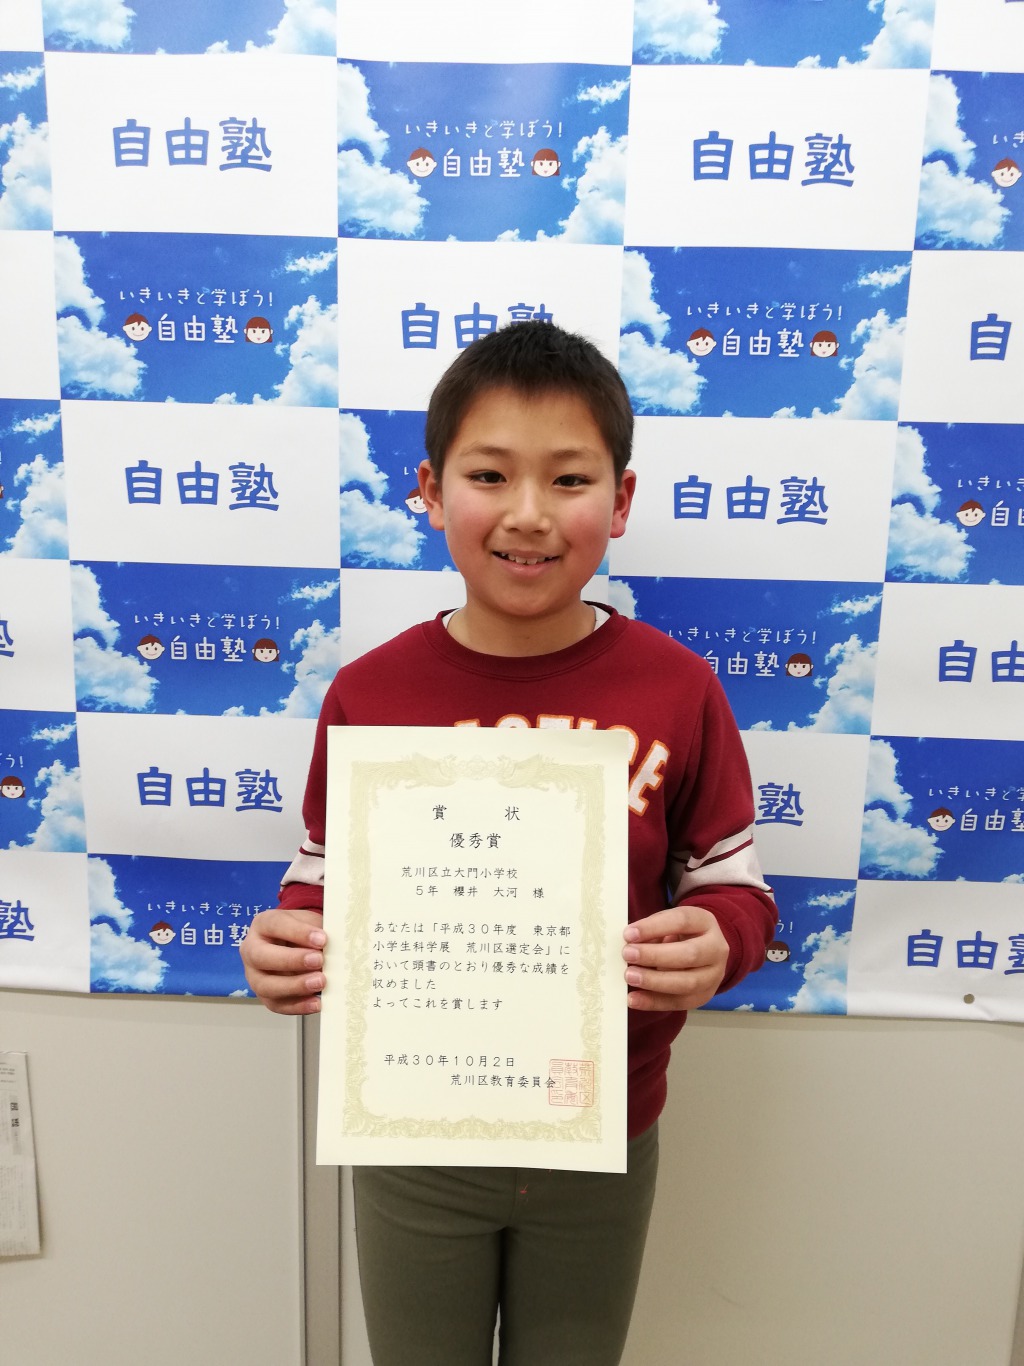 自由塾
いきいきと学ぼう!
自由塾
自由塾
いきいきと学ぼう!
自由塾
自由塾
いきいきと学ぼう!
自由塾
自由塾
自由塾
いきいきと
自由
いきいきと学ぼう!
自由塾
いきいきと学ぼう!
自由塾
自由
自由塾
塾
いきいきと
自由塾
賞 状
優秀賞
荒川区立大門小学校
5年 櫻井 大河 様
あなたは「平成30年度 東京都
小学生科学展 荒川区選定会」に
おいて頭書のとおり優秀な成績を
収めました
よってこれを賞します
平成30年10月2日
荒川区教育委員会